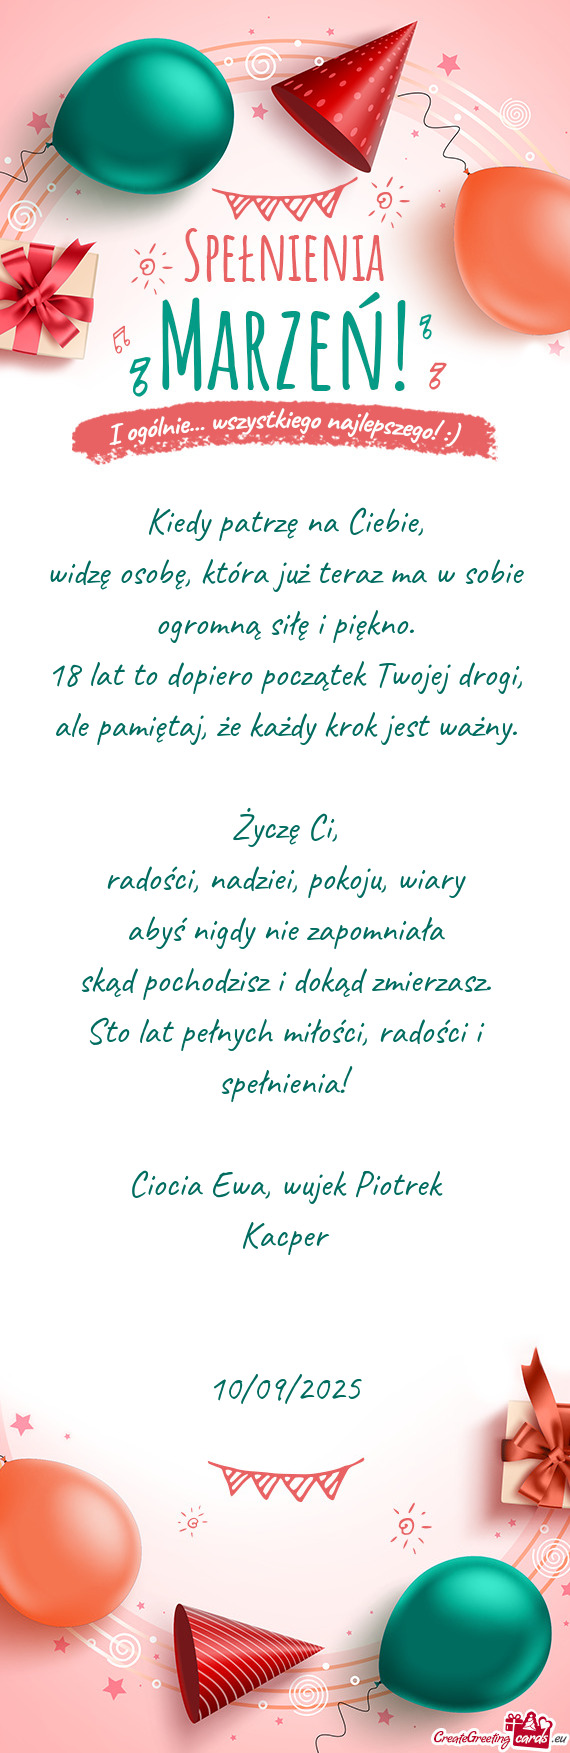 Spełnienia
Marzeń!
I ogólnie... wszystkiego najlepszego! :)
Kiedy patrzę na Ciebie,
widzę osobę, która już teraz ma w sobie
ogromną siłę i piękno.
18 lat to dopiero początek Twojej drogi,
ale pamiętaj, że każdy krok jest ważny.
Życzę Ci,
radości, nadziei, pokoju, wiary
abyś nigdy nie zapomniała
skąd pochodzisz i dokąd zmierzasz.
Sto lat pełnych miłości, radości i
spełnienia!
Ciocia Ewa, wujek Piotrek
Kacper
10/09/2025
CreateGreetingcards.eu